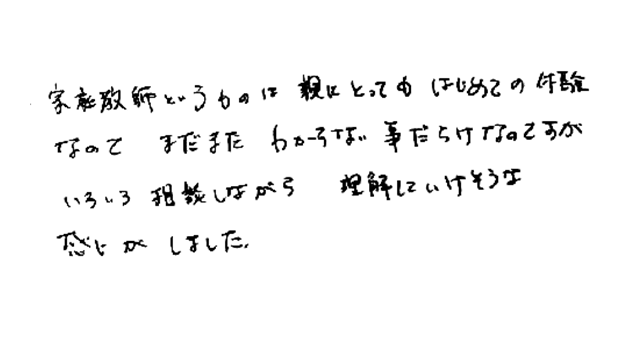 家庭教師というものは 親にとっても はじめての体験
なので まだまだ わからない事だらけなのですが
いろいろ 相談しながら 理解していけそうな
感じが しました。